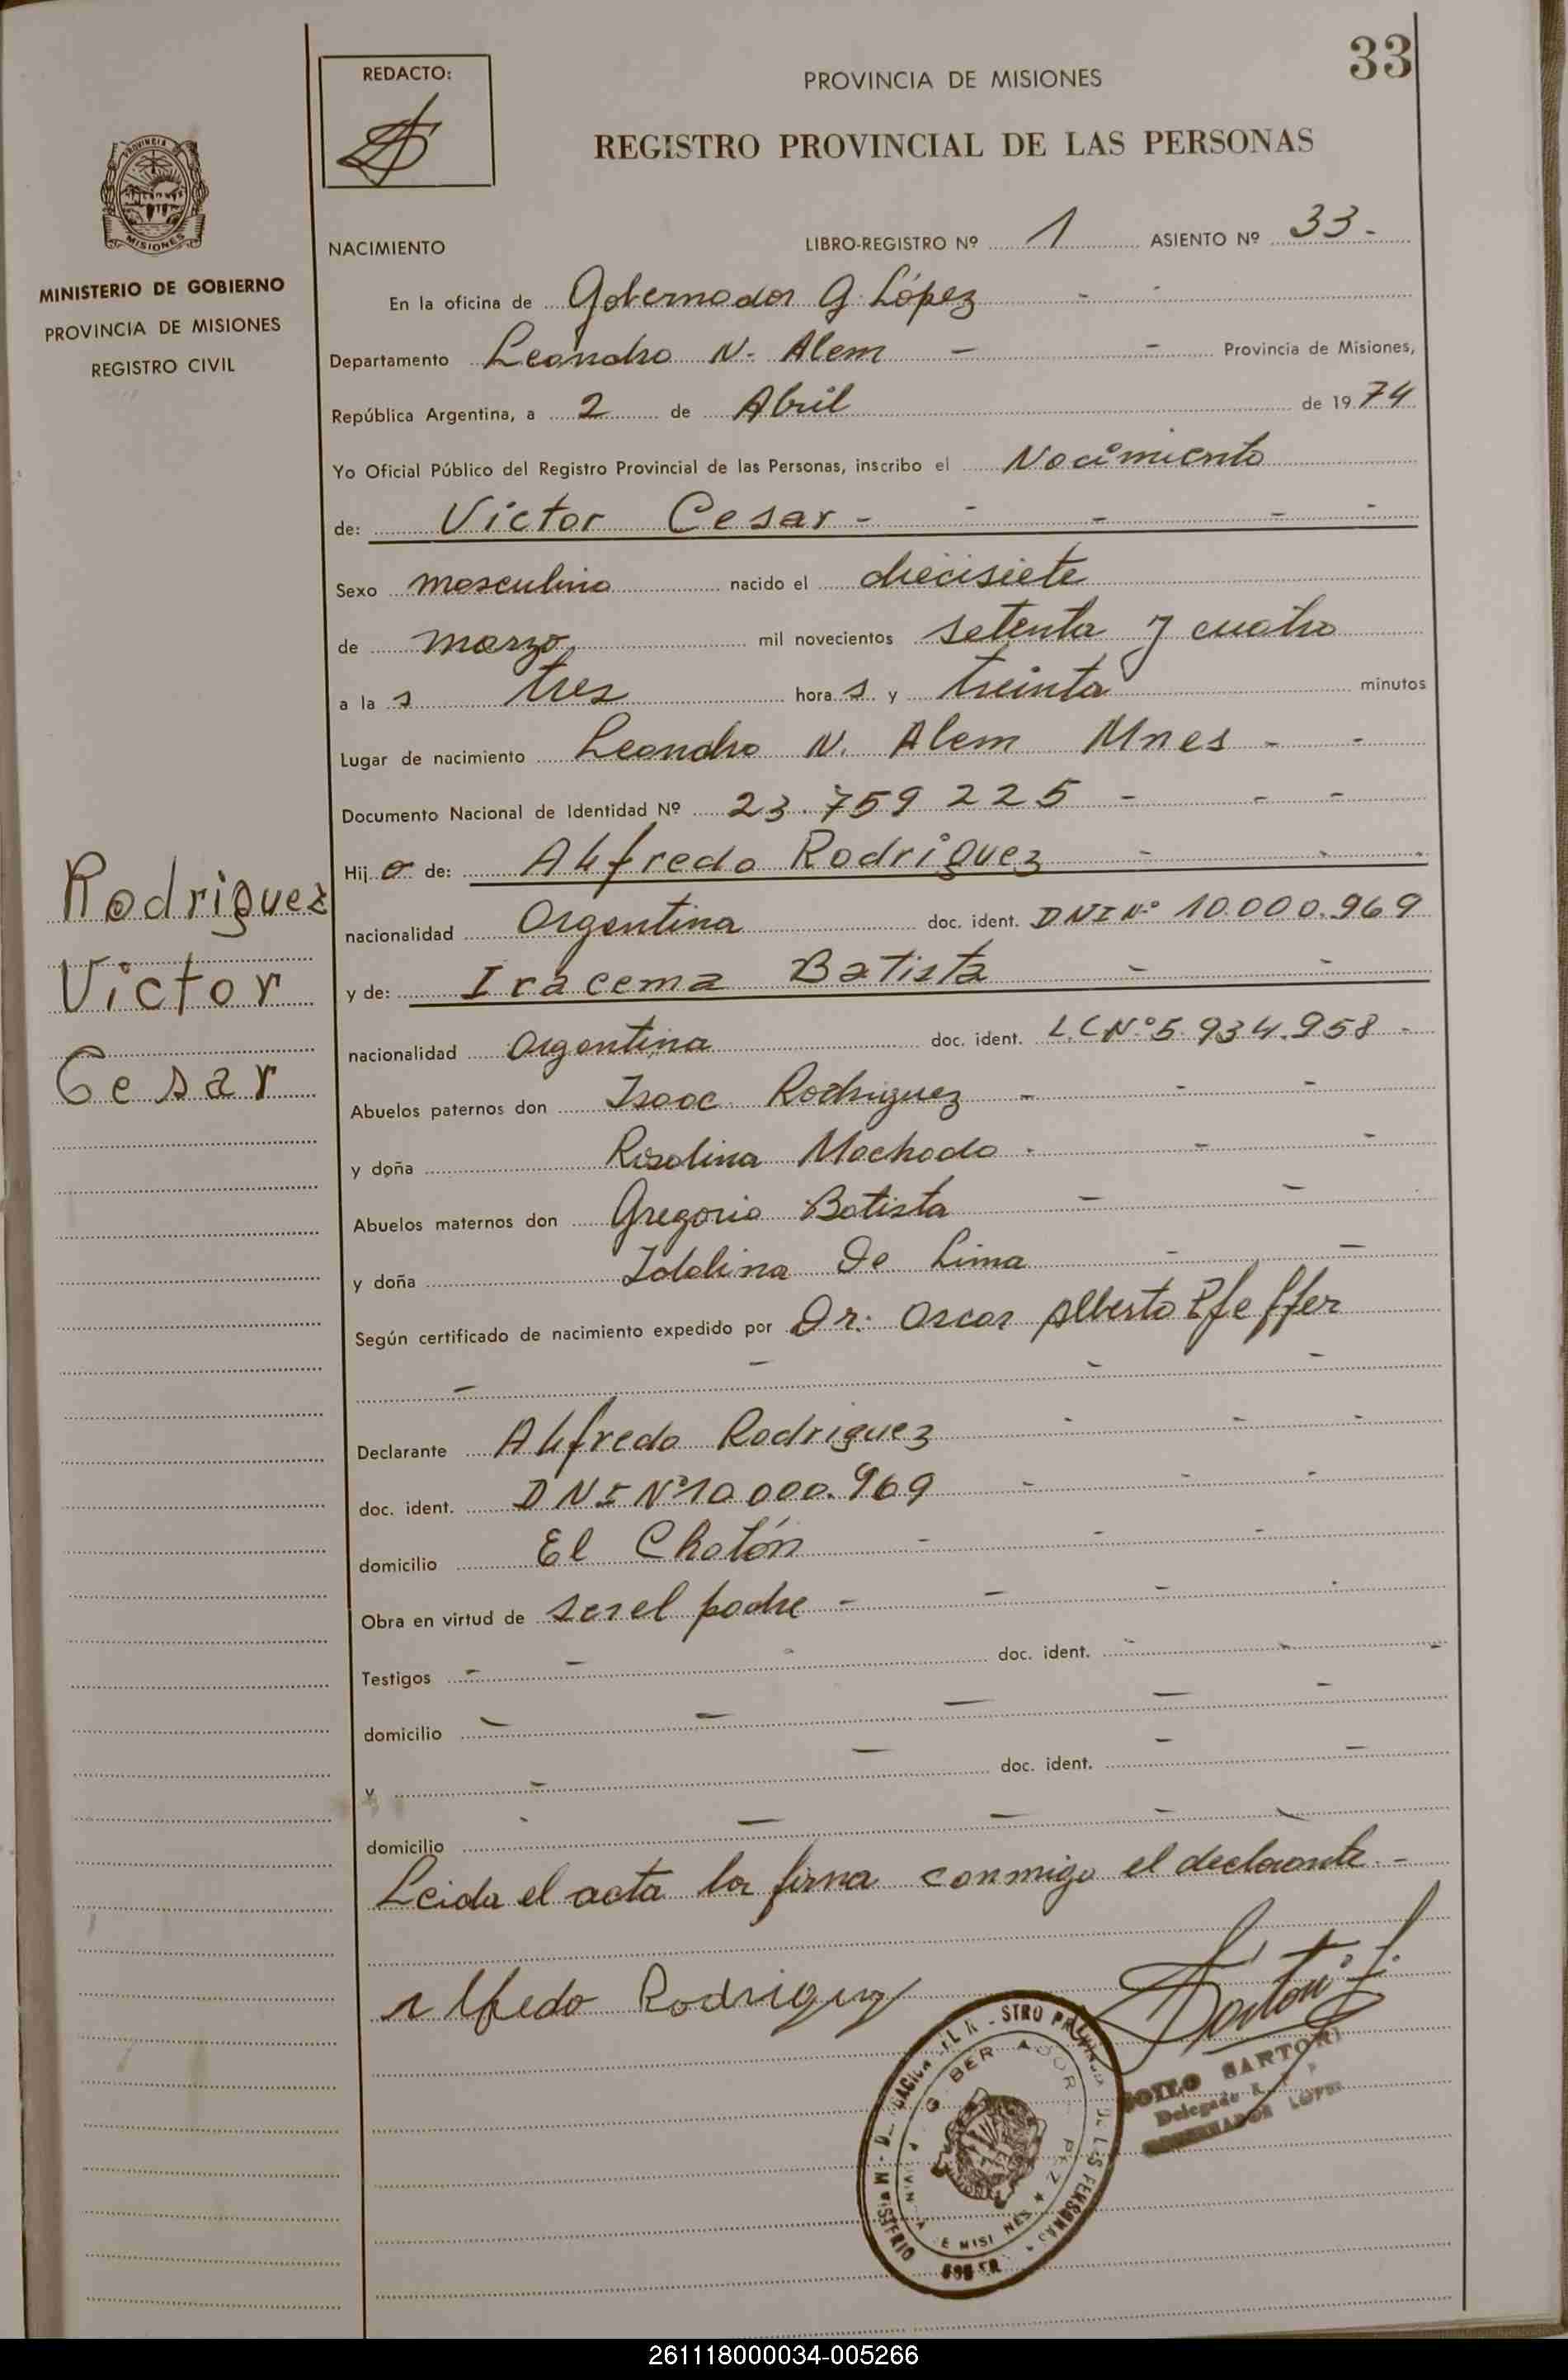 33
REDACTO:
PROVINCIA DE MISIONES
REGISTRO PROVINCIAL DE LAS PERSONAS
PROVINCIA DE
MISIONES
MINISTERIO DE GOBIERNO
PROVINCIA DE MISIONES
REGISTRO CIVIL
NACIMIENTO LIBRO-REGISTRO Nº 1 ASIENTO Nº 33.-
En la oficina de Gobernador G. López - -
Departamento Leandro N. Alem - - Provincia de Misiones,
República Argentina, a 2 de Abril de 1974
Yo Oficial Público del Registro Provincial de las Personas, inscribo el Nacimiento
de: Victor Cesar - - - - -
Sexo masculino nacido el diecisiete
de marzo mil novecientos setenta y cuatro
a las tres horas y treinta minutos
Lugar de nacimiento Leandro N. Alem Mnes - -
Documento Nacional de Identidad Nº 23.759225 - - -
Hijo de: Alfredo Rodriguez - - -
nacionalidad Argentina doc. ident. DNI Nº 10.000.969
y de: Iracema Batista - -
nacionalidad Argentina doc. ident. L.C Nº 5.934.958 -
Abuelos paternos don Isaac Rodriguez - - -
y doña Rosalina Machado - - -
Abuelos maternos don Gregorio Batista - -
y doña Idalina De Lima - -
Según certificado de nacimiento expedido por Dr. Oscar Alberto Pfeffer
- - - -
Declarante Alfredo Rodriguez - - -
doc. ident. DNI Nº 10.000.969 - - -
domicilio El Chatón - - -
Obra en virtud de ser el padre - - - -
Testigos - - - doc. ident. - - -
domicilio - - - - -
y - - doc. ident. - -
domicilio - - - - -
Leida el acta la firma conmigo el declarante.-
Alfredo Rodriguez
Rodriguez
Victor
Cesar
ZOILO SARTORI
Delegado R. P. P.
GOBERNADOR LOPEZ
261118000034-005266